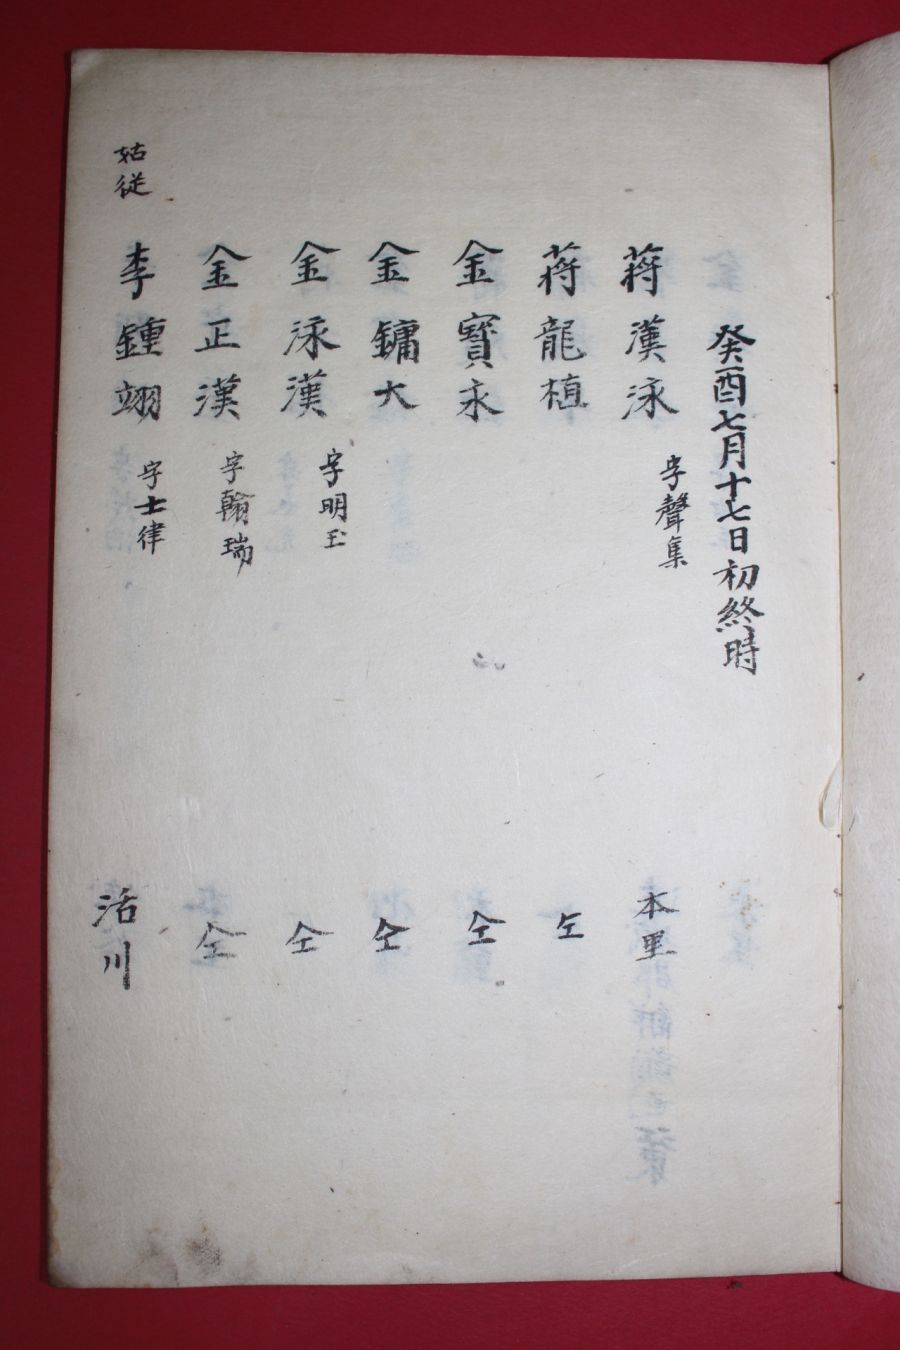 癸酉七月十七日初終時
蒋漢泳 字聲集 本里
蒋龍植 仝
金寶永 仝
金鏞大 仝
金泳漢 字明玉 仝
金正漢 字翰瑞 仝
姑従 李鍾翊 字士律 活川